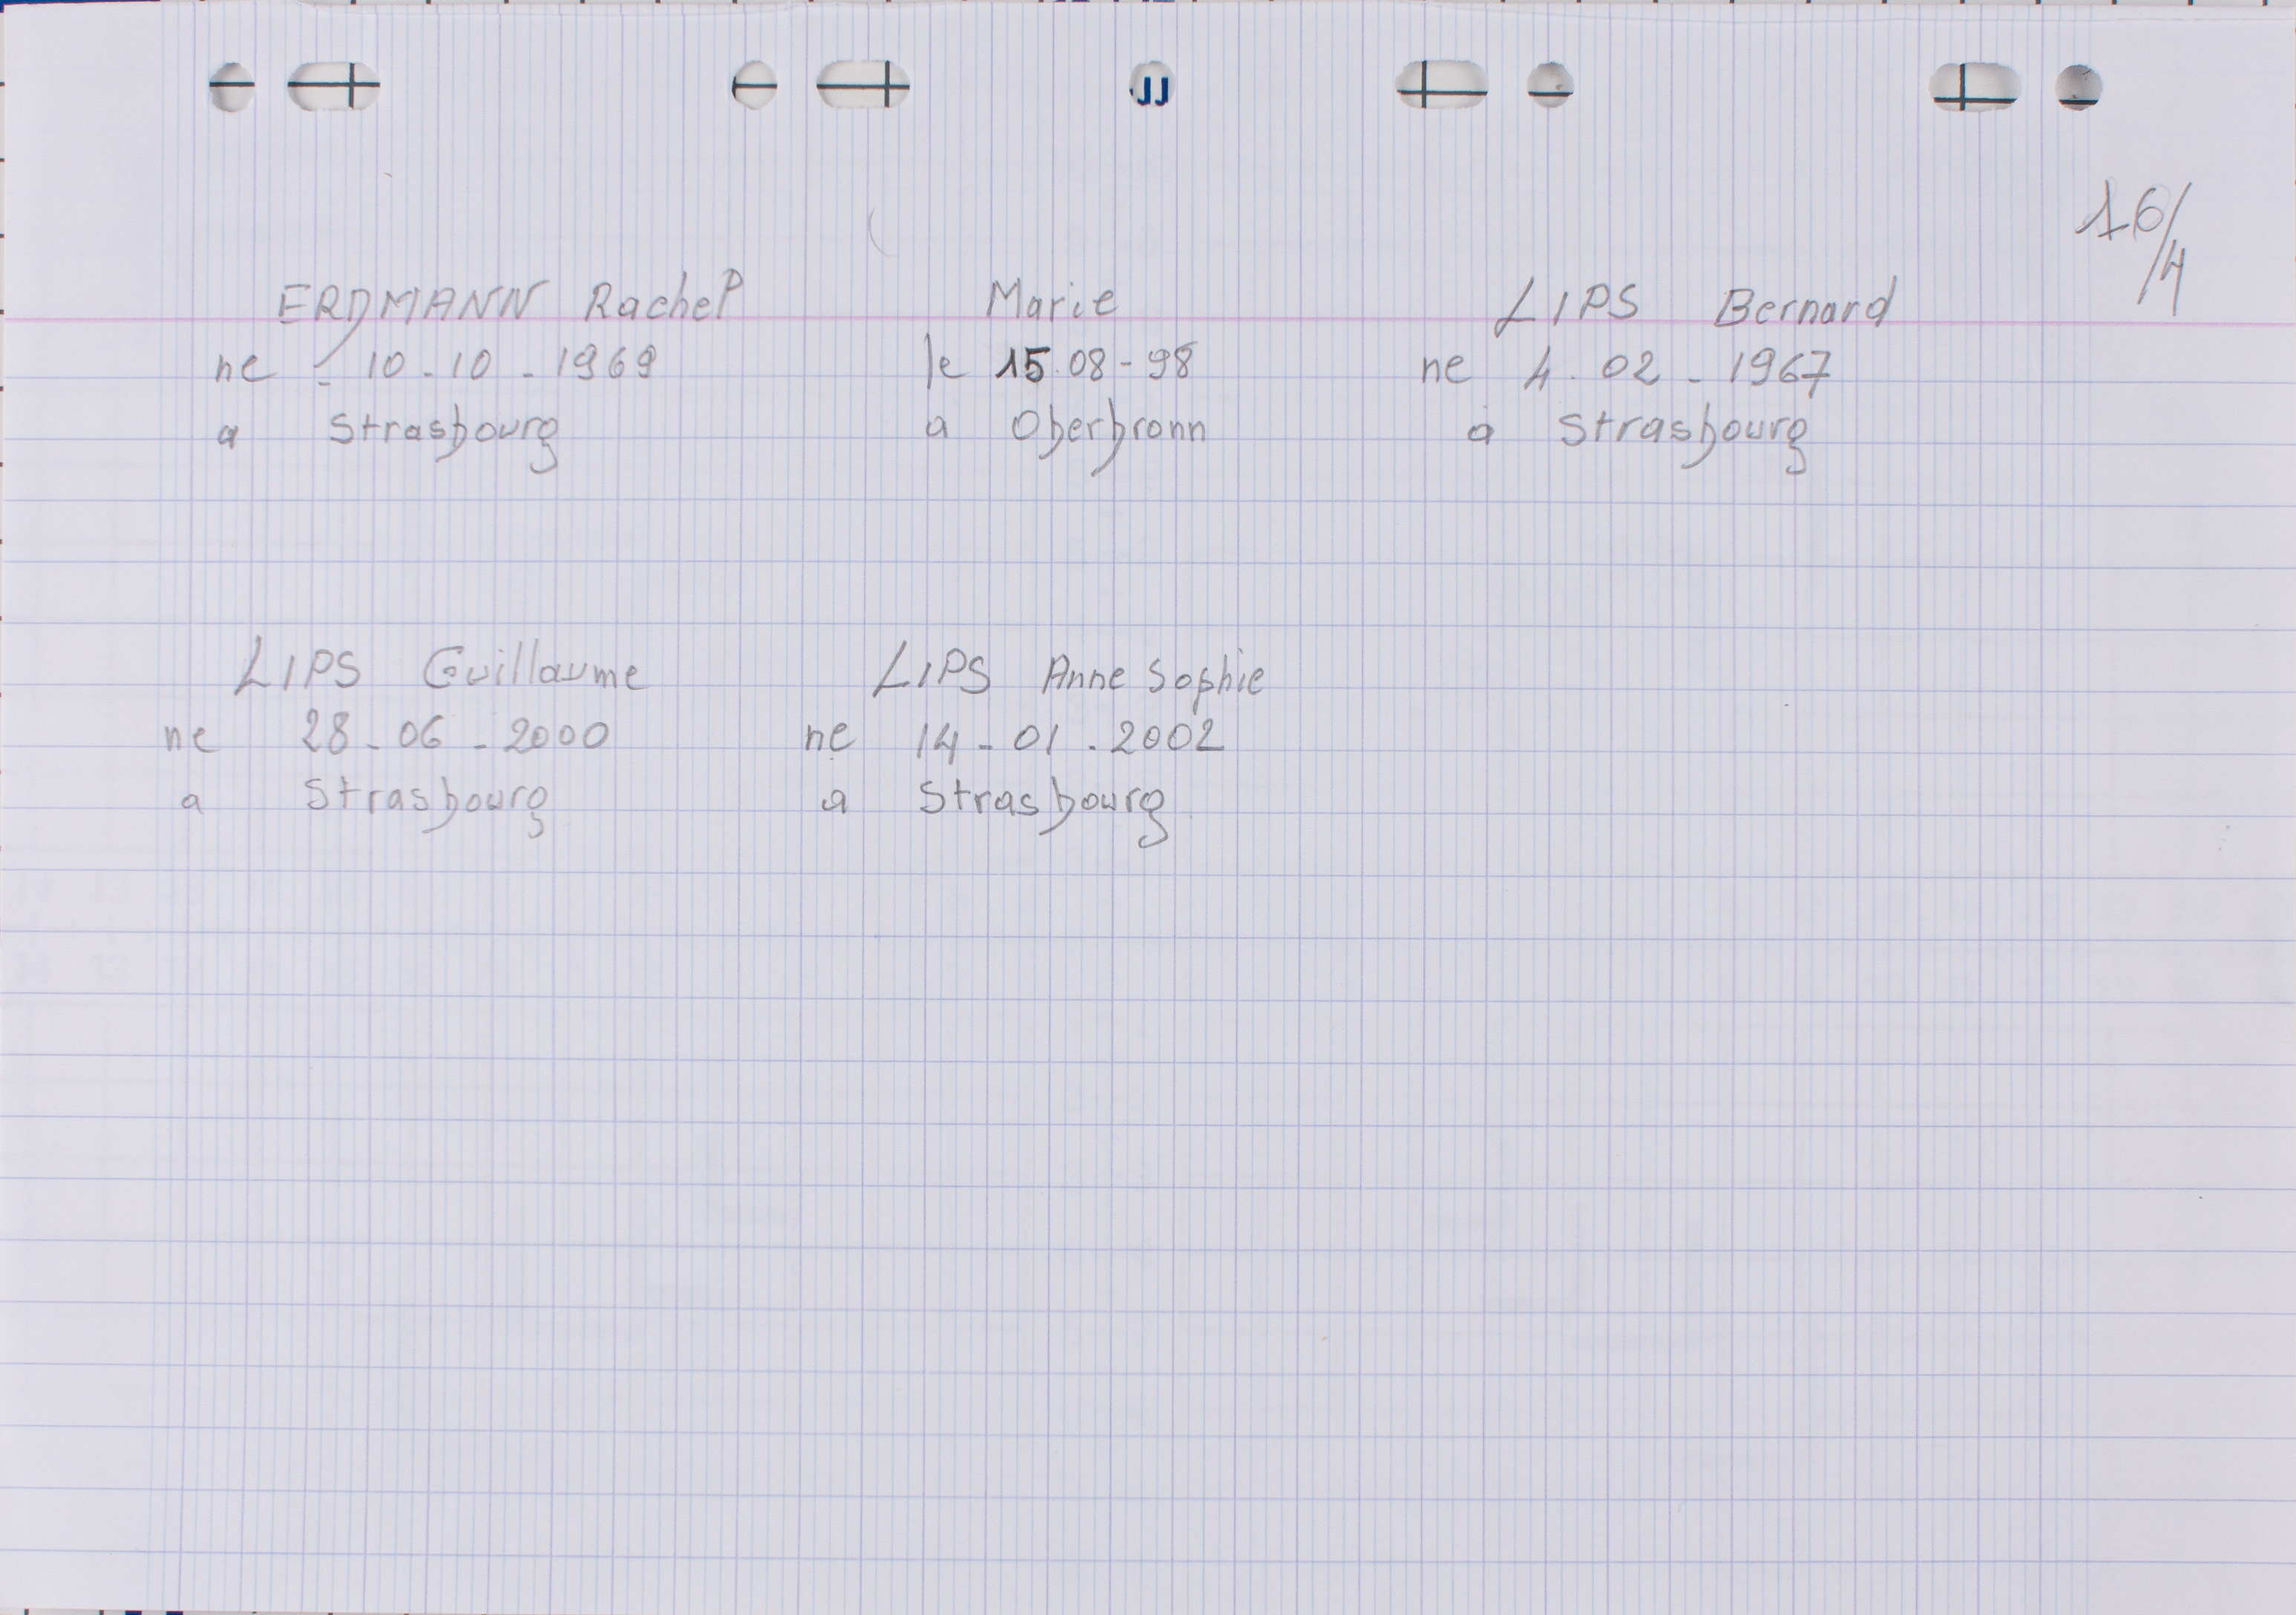 16/4
ERDMANN Rachel Marie LIPS Bernard
ne - 10-10-1969 le 15.08-98 ne 4.02-1967
a Strasbourg a Oberbronn a Strasbourg
LIPS Guillaume LIPS Anne Sophie
ne 28-06-2000 ne 14-01.2002
a Strasbourg a Strasbourg